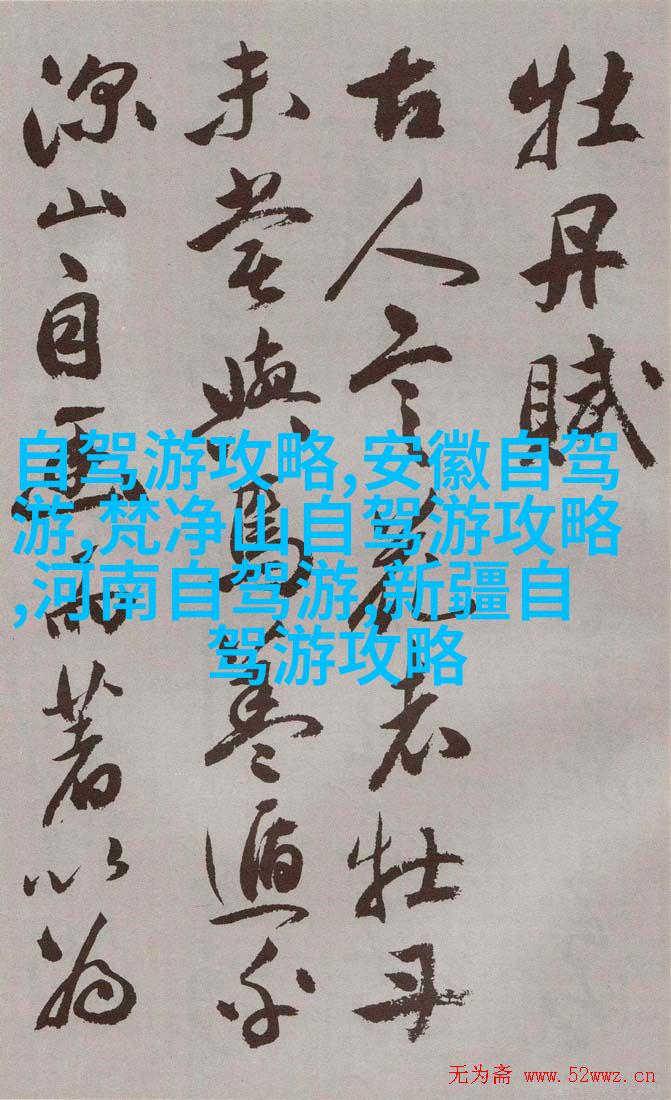 牡丹賦
古人言花者牡丹
未嘗與焉蓋遁乎
深山自而著以為
自驾游攻略,安徽自驾
游,梵净山自驾游攻略
,河南自驾游,新疆自
驾游攻略
无为斋 www.52wwz.cn